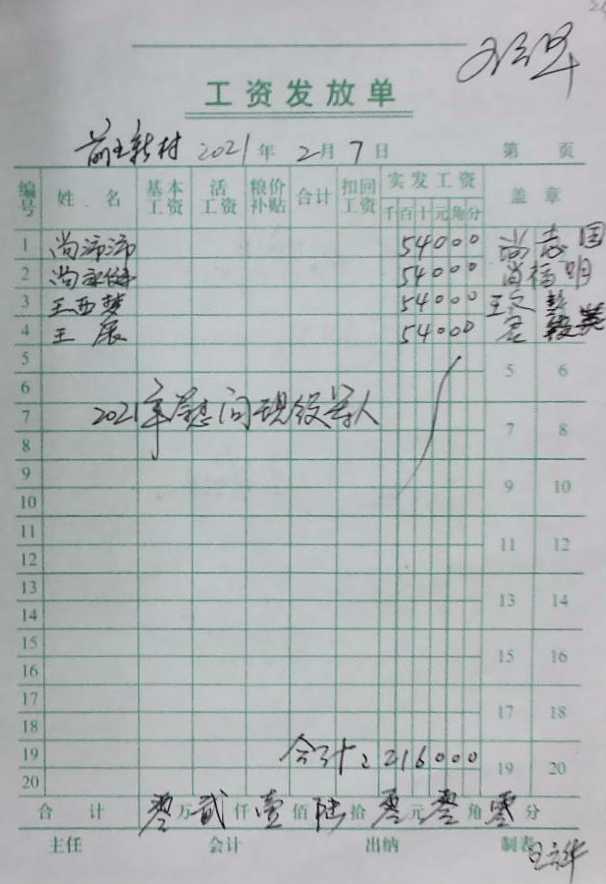 工资发放单
前王新村 2021年 2月 7日 第 页
编号 姓名 基本工资 活工资 粮价补贴 合计 扣回工资 实发工资 盖章
千百十元角分
1 尚沛沛 54000 尚志国
2 尚 54000 尚福明
3 王西梦 54000 王文
4 王展 54000
5 5 6
6
7 2021年慰问现役军人 7 8
8
9 9 10
10
11 11 12
12
13 13 14
14
15 15 16
16
17 17 18
18
19 合计: 216000 19 20
20
合计 零万贰仟壹佰陆拾零元零角零分
主任 会计 出纳 制表